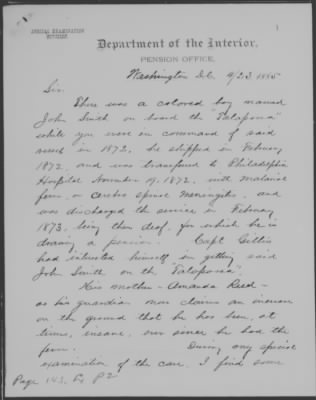 SPECIAL EXAMINATION
DIVISION.
Department of the Interior,
PENSION OFFICE,
Washington D.C. 4/23 1885
Sir:
There was a colored boy named
John Smith on board the "Patapsco"
while you were in command of said
vessel in 1872, he shipped in February
1872, and was transferred to Philadelphia
Hospital November 19, 1872, with malarial
fever, or cerebro spinal meningitis, and
was discharged the service in February
1873, being then deaf, for which he is
drawing a pension. Capt. Gillis
had interested himself in getting said
John Smith on the
His mother - Amanda Reed -
as his guardian now claims an increase
on the ground that he has been, at
times, insane, ever since he had the
fever. During my special
examination of the case, I find some
Page 143, Ex P2